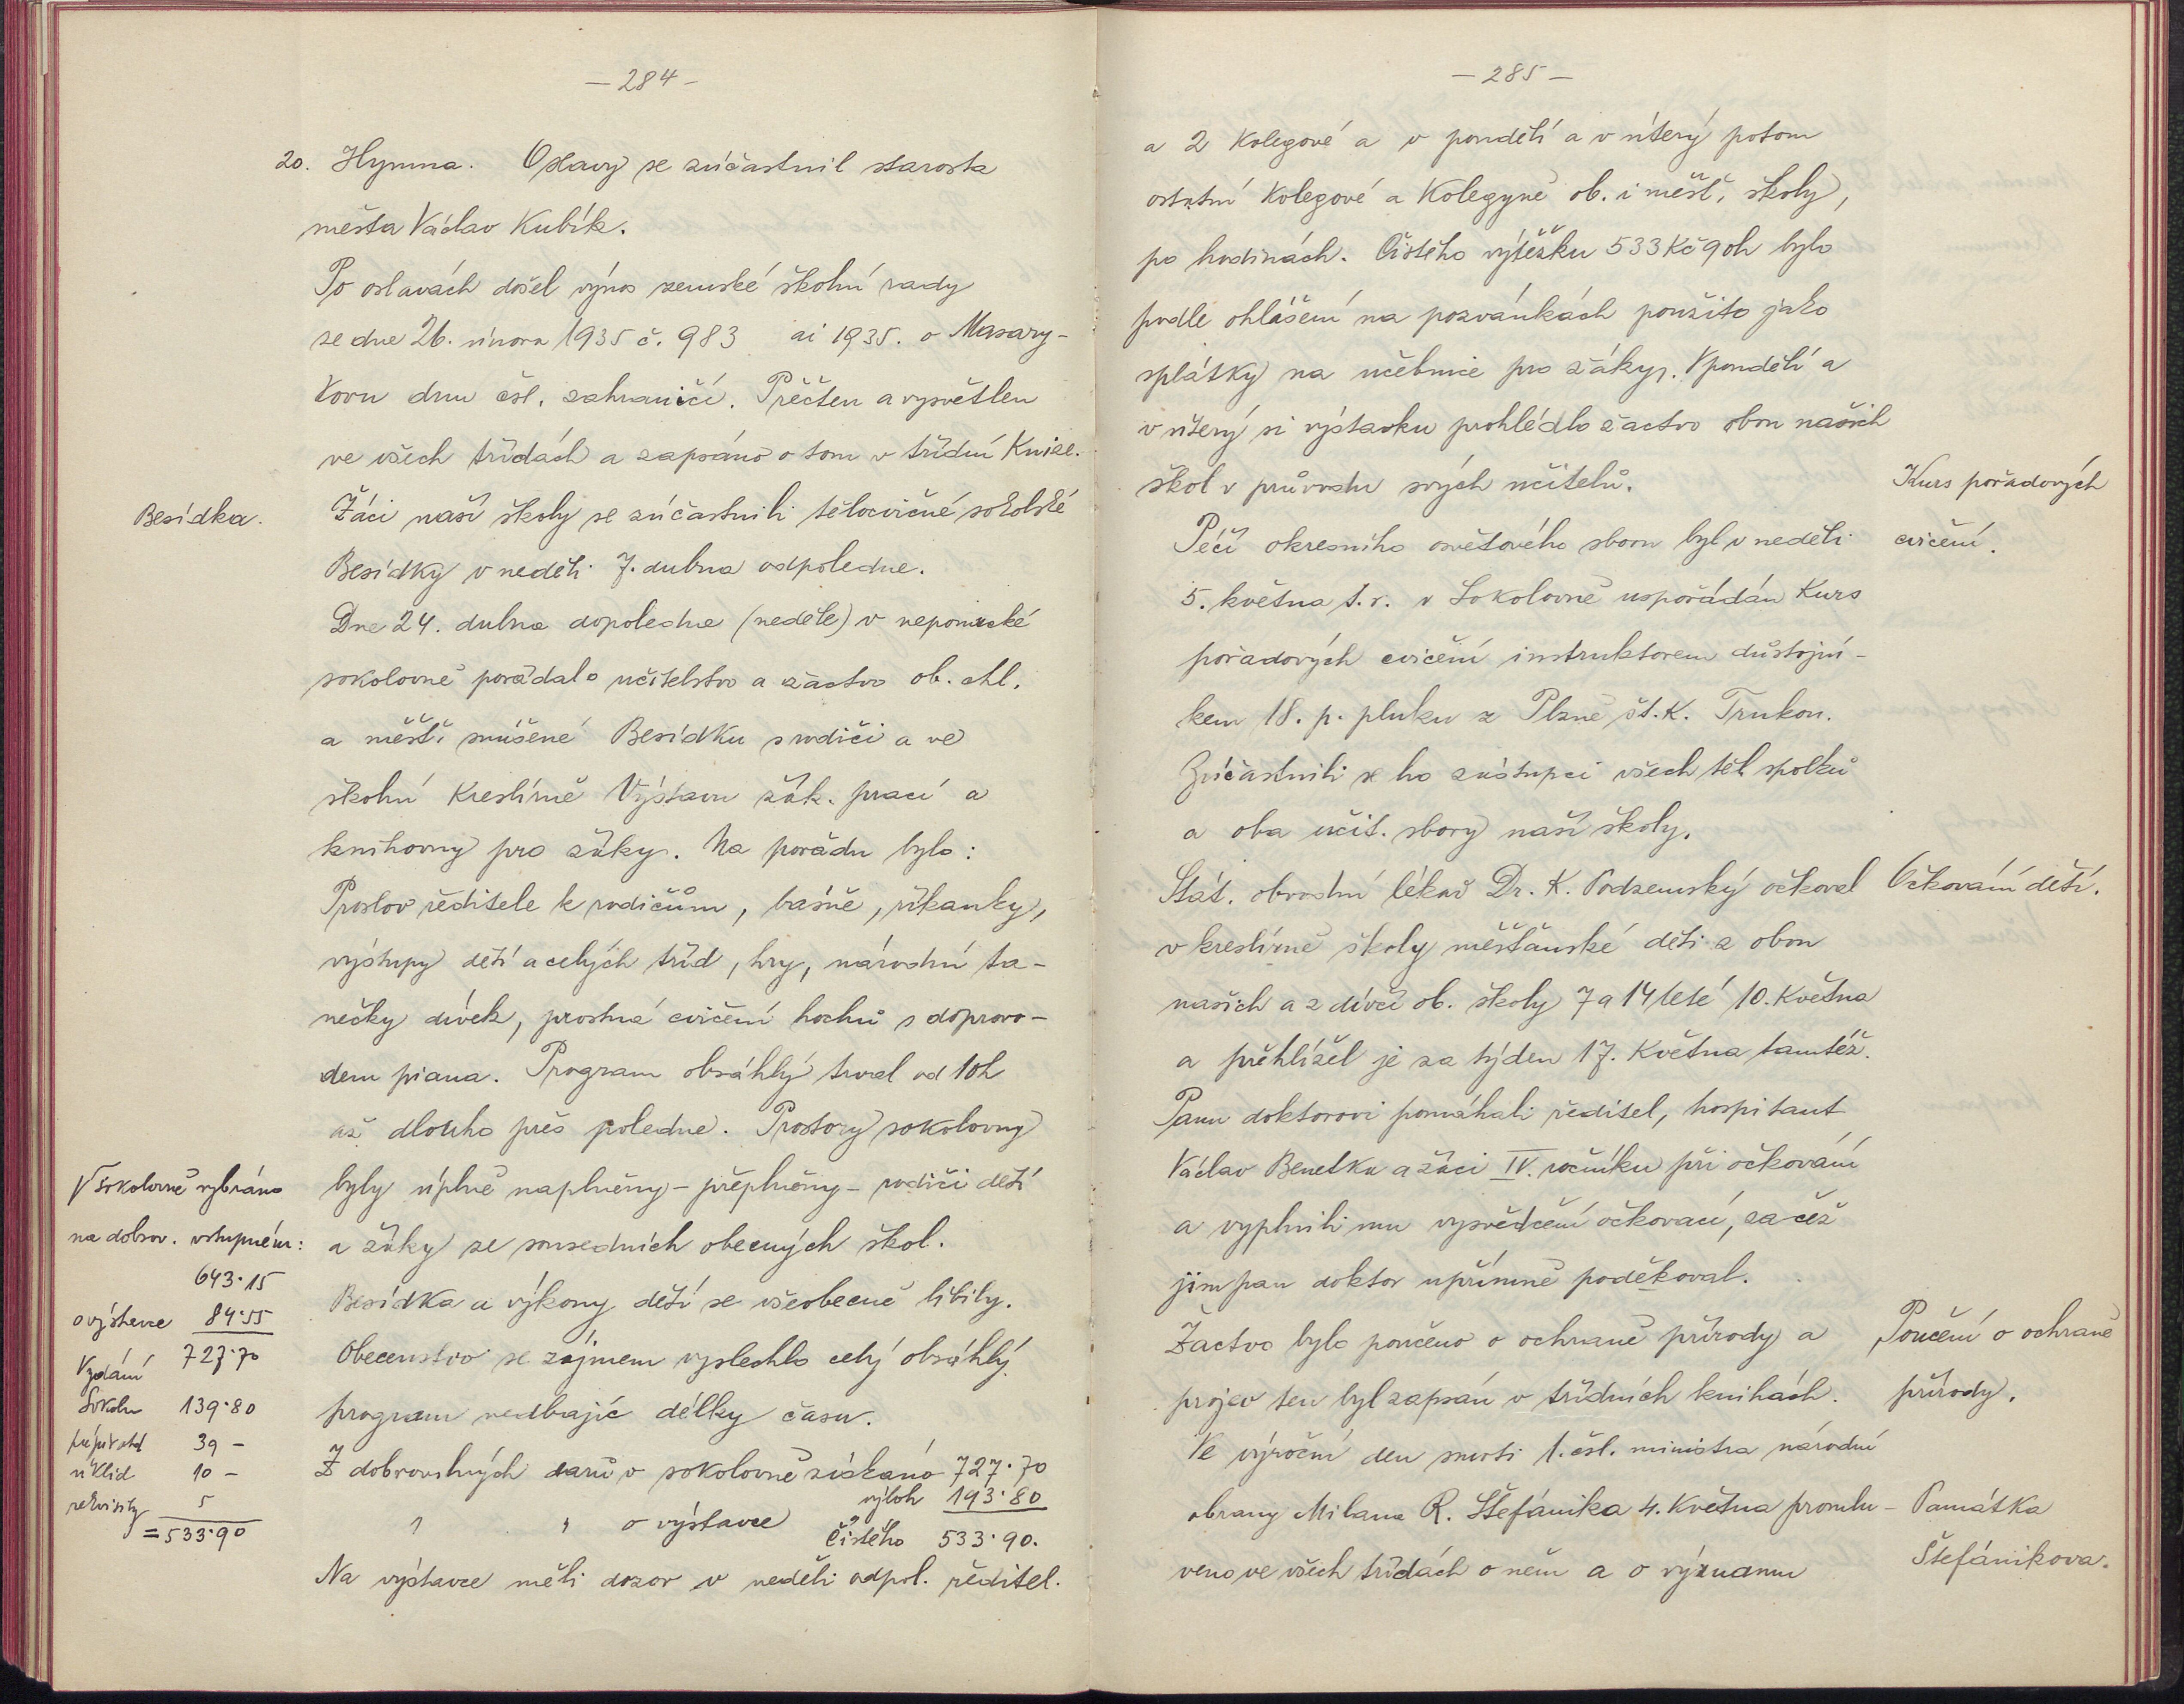 — 284 —
20. Hymna. Oslavy se zúčastnil starosta
města Václav Kubík.
Po oslavách došel výnos zemské školní rady
ze dne 26. února 1935 č. 983 ai 1935. o Masary-
kovu dnu čsl. zahraničí. Přečten a vysvětlen
ve všech třídách a zapsáno o tom v třídní Knize.
Besídka.
Žáci naší školy se zúčastnili tělocvičné sokolské
Besídky v neděli 7. dubna odpoledne.
Dne 24. dubna dopoledne (neděle) v nepomucké
sokolovně pořádalo učitelstvo a žactvo ob. chl.
a měšť. smíšené Besídku s rodiči a ve
školní Kreslírně Výstavu žák. prací a
knihovny pro žáky. Na pořadu bylo:
Proslov ředitele k rodičům, básně, říkanky,
výstupy dětí a celých tříd, hry, národní ta-
nečky dívek, prostná cvičení hochů s doprovo-
dem piana. Program obsáhlý trval od 10h
až dlouho přes poledne. Prostory sokolovny
byly úplně naplněny - přeplněny - rodiči dětí
a žáky ze sousedních obecných škol.
Besídka a výkony dětí se všeobecně líbily.
Obecenstvo se zájmem vyslechlo celý obsáhlý
program nedbajíc délky času.
Z dobrovolných darů v sokolovně získáno 727·70
výloh 193·80
" " o výstavce čistého 533·90.
Na výstavce měli dozor v neděli odpol. ředitel.
V Sokolovně vybráno
na dobrov. vstupném:
643·15
o výstavce 84·55
727·70
Vydání
Sokolu 139·80
39 -
úklid 10 -
rekvisity 5
= 533·90
— 285 —
a 2 Kolegové a v pondělí a v úterý potom
ostatní Kolegové a Kolegyně ob. i měšť. školy,
po hodinách. Čistého výtěžku 533 Kč 90h bylo
podle ohlášení na pozvánkách použito jako
splátky na učebnice pro žáky. V pondělí a
v úterý si výstavku prohlédlo žactvo obou našich
škol v průvodu svých učitelů.
Kurs pořadových
cvičení.
Péčí okresního osvětového sboru byl v neděli
5. května t.r. v Sokolovně uspořádán Kurs
pořadových cvičení instruktorem důstojní-
kem 18. p. pluku z Plzně št. K. Trukou.
Zúčastnili se ho zástupci všech těl. spolků
a oba učit. sbory naší školy.
Očkování dětí.
Stát. obvodní lékař Dr. K. Podzemský očkoval
v kreslírně školy měšťanské děti z obou
našich a z dívčí ob. školy 7 a 14 leté 10. Května
a přehlížel je za týden 17. Května tamtéž.
Panu doktorovi pomáhali ředitel, hospitant
Václav Benetka a žáci IV. ročníku při očkování
a vyplnili mu vysvědčení očkovací, začež
jim pan doktor upřímně poděkoval.
Poučení o ochraně
přírody.
Žactvo bylo poučeno o ochraně přírody a
projev ten byl zapsán v třídních knihách.
Ve výroční den smrti 1. čsl. ministra národní
obrany Milana R. Štefánika 4. Května promlu-
veno ve všech třídách o něm a o významu
Památka
Štefánikova.